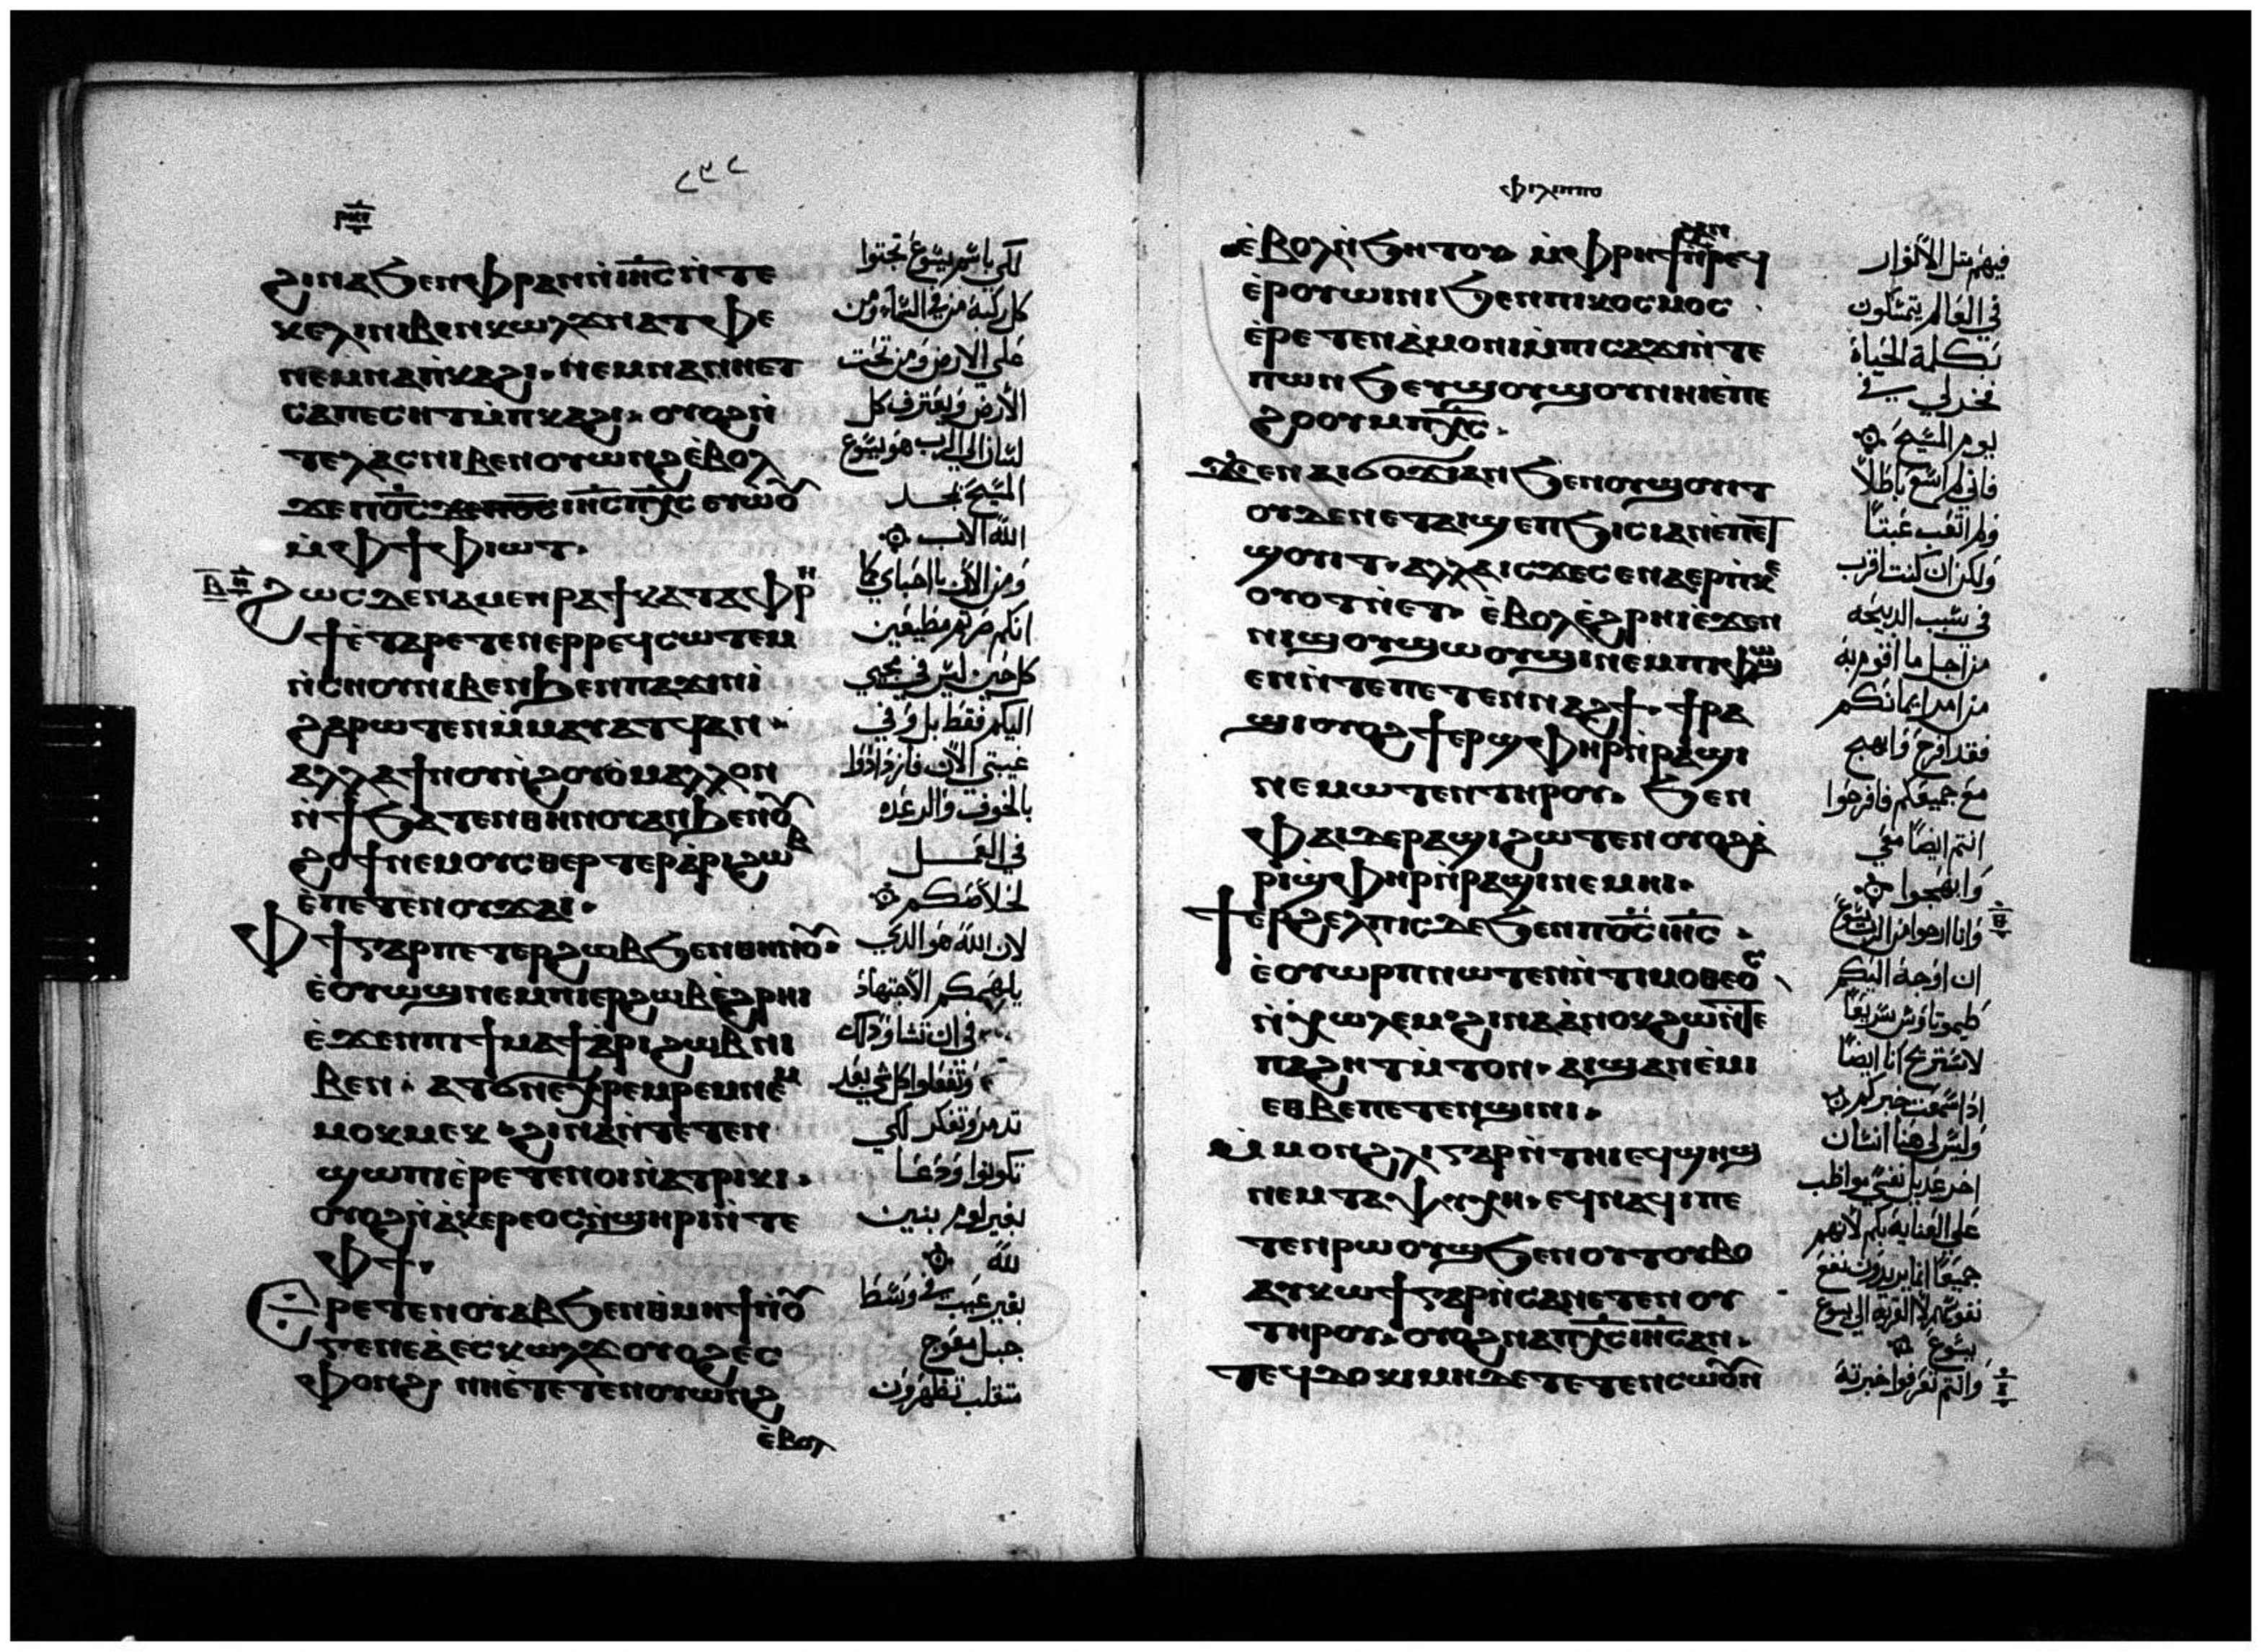 ⲣⲕⲋ
ϩⲓⲛⲁ ϧⲉⲛ ⲫⲣⲁⲛ ⲛ̀ⲓⲏ̅ⲥ̅ ⲛ̀ⲧⲉ
ⲕⲉⲗⲓ ⲛⲓⲃⲉⲛ ⲕⲱⲗϫ ⲛⲁ ⲧⲫⲉ
ⲛⲉⲙ ⲛⲁ ⲡ̀ⲕⲁϩⲓ. ⲛⲉⲙ ⲛⲁ ⲛⲉⲧ
ⲥⲁⲡⲉⲥⲏⲧ ⲙ̀ⲡⲕⲁϩⲓ. ⲟⲩⲟϩ ⲛ̀
ⲧⲉ ⲗⲁⲥ ⲛⲓⲃⲉⲛ ⲟⲩⲱⲛϩ ⲉ̀ⲃⲟⲗ
ϫⲉ ⲡⲟ̅ⲥ̅ ϫⲉ ⲡⲟ̅ⲥ̅ ⲓⲏ̅ⲥ̅ ⲡⲭ̅ⲥ̅ ⲉⲩⲱⲟⲩ
ⲙ̀ⲫϯ ⲫⲓⲱⲧ.
ϩⲱⲥⲇⲉ ⲛⲁⲙⲉⲛⲣⲁϯ ⲕⲁⲧⲁ ⲫⲣⲏ
ϯ ⲉ̀ⲧⲁⲣⲉⲧⲉⲛⲉⲣⲣⲉϥⲥⲱⲧⲉⲙ
ⲛ̀ⲥⲏⲟⲩ ⲛⲓⲃⲉⲛ ϧⲉⲛ ⲡⲁϫⲓⲛⲓ
ϩⲁⲣⲱⲧⲉⲛ ⲙ̀ⲙⲁⲩⲁⲧϥ ⲁⲛ.
ⲁⲗⲗⲁ ϯⲛⲟⲩ ⲛ̀ϩⲟⲩⲟ̀ ⲙⲁⲗⲗⲟⲛ
ⲛ̀ϯϧⲁⲧⲉⲛ ⲑⲏⲛⲟⲩ ⲁⲛ ϧⲉⲛ ⲟⲩ
ϩⲟϯ ⲛⲉⲙ ⲟⲩⲥⲑⲉⲣⲧⲉⲣ ⲁ̀ⲣⲓϩⲱⲃ
ⲉ̀ⲡⲉⲧⲉⲛⲟⲩϫⲁⲓ.
ⲫϯ ⲅⲁⲣ ⲡⲉⲧⲉⲣϩⲱⲃ ϧⲉⲛ ⲑⲏⲛⲟⲩ.
ⲉ̀ⲟⲩⲱϣ ⲛⲉⲙ ⲡⲓⲉⲣϩⲱⲃ ⲉ̀ϩⲣⲏⲓ
ⲉ̀ϫⲉⲛ ⲡⲓϯⲙⲁϯ ⲁ̀ⲣⲓ ϩⲱⲃ ⲛⲓ
ⲃⲉⲛ. ⲁⲧϭⲛⲉ ⲭⲣⲉⲙⲣⲉⲙ ⲛⲉⲙ
ⲙⲟⲕⲙⲉⲕ ϩⲓⲛⲁ ⲛ̀ⲧⲉⲧⲉⲛ
ϣⲱⲡⲓ ⲉ̀ⲣⲉⲧⲉⲛⲟⲓ ⲛ̀ⲁⲧⲣⲓⲕⲓ.
ⲟⲩⲟϩ ⲛ̀ⲁⲕⲉⲣⲉⲟⲥ ⲛ̀ϣⲏⲣⲓ ⲛ̀ⲧⲉ
ⲫϯ.
ⲉⲣⲉⲧⲉⲛⲟⲩⲁⲃ ϧⲉⲛ ⲑ̀ⲙⲏϯ ⲛ̀ⲟⲩ
ⲅⲉⲛⲉⲁ̀ ⲉⲥⲕⲱⲗϫ ⲟⲩⲟϩ ⲉⲥ
ⲫⲟⲛϩ ⲛⲏ ⲉ̀ⲧⲉⲧⲉⲛⲟⲩⲱⲛϩ
ⲉ̀ⲃⲟⲗ
لكي باسم يسوع تجثوا
كل ركبة من في السماء ومن
على الارض ومن تحت
الأرض ويعترف كل
لسان ان الرب هو يسوع
المسيح لمجد
الله الآب
ومن الآن يا احباي كما
انكم صرتم مطيعين
كل حين ليس في مجيي
اليكم فقط بل وفي
غيبتي الآن فازدادوا
بالخوف والرعده
في العمل
لخلاصكم
لان الله هو الذي
يلهمكم الاجتهاد
في ان تشاو ذلك
وتفعلوا كل شي بغير
تدمر وتفكر لكي
تكونوا ودعا
بغير لوم بنين
لله
بغير عيب في وسط
جيل معوج
متقلب تظهرون
ⲫⲓⲗⲓⲡⲡⲟ
ⲉ̀ⲃⲟⲗ ⲛ̀ϧⲏⲧⲟⲩ ⲙ̀ⲫⲣⲏϯ ⲛ̀ϩⲁⲛⲣⲉϥ
ⲉⲣⲟⲩⲱⲓⲛⲓ ϧⲉⲛ ⲡⲓⲕⲟⲥⲙⲟⲥ
ⲉ̀ⲣⲉⲧⲉⲛⲁ̀ⲙⲟⲛⲓ ⲙ̀ⲡⲓⲥⲁϫⲓ ⲛ̀ⲧⲉ
ⲡⲱⲛϧ ⲉⲩϣⲟⲩϣⲟⲩ ⲛⲏⲓ ⲉ̀ⲡⲉ
ϩⲟⲟⲩ ⲙ̀ⲡⲭ̅ⲥ̅.
ϫⲉ ⲛⲁⲓϭⲟϫⲓ ⲁⲛ ϧⲉⲛ ⲟⲩϣⲟⲩⲓⲧ
ⲟⲩⲇⲉ ⲛⲉⲧⲁⲓϣⲉⲡϧⲓⲥⲓ ⲁⲛ ⲉⲡⲉⲧ
ϣⲟⲩⲓⲧ. ⲁⲗⲗⲁ ⲓⲥϫⲉ ⲥⲉⲛⲁⲉⲣⲡⲕⲉ
ⲟⲩⲟⲧⲛⲉⲧ ⲉ̀ⲃⲟⲗ ⲉ̀ϩⲣⲏⲓ ⲉ̀ϫⲉⲛ
ⲡⲓϣⲟⲩϣⲱⲟⲩϣⲓ ⲛⲉⲙ ⲡⲓϣⲉⲙϣ
ⲉⲛ ⲛ̀ⲧⲉ ⲡⲉⲧⲉⲛⲛⲁϩϯ. ϯⲣⲁ
ϣⲓ ⲟⲩⲟϩ ϯⲉⲣϣⲫⲏⲣ ⲛ̀ⲣⲁϣⲓ
ⲛⲉⲙⲱⲧⲉⲛ ⲧⲏⲣⲟⲩ. ϧⲉⲛ
ⲫⲁⲓ ⲇⲉ ⲣⲁϣⲓ ϩⲱⲧⲉⲛ ⲟⲩⲟϩ ⲁ̀
ⲣⲓϣⲫⲏⲣ ⲛ̀ⲣⲁϣⲓ ⲛⲉⲙⲏⲓ.
ϯⲉⲣϩⲉⲗⲡⲓⲥ ⲇⲉ ϧⲉⲛ ⲡⲟ̅ⲥ̅ ⲓⲏ̅ⲥ̅.
ⲉ̀ⲟⲩⲱⲣⲡ ⲛⲱⲧⲉⲛ ⲛ̀ⲧⲓⲙⲟⲑⲉⲟⲥ
ⲛ̀ⲭⲱⲗⲉⲙ ϩⲓⲛⲁ ⲁ̀ⲛⲟⲕ ϩⲱ ⲛ̀ⲧⲉ
ⲡⲁϩⲏⲧ ⲙ̀ⲧⲟⲛ. ⲁⲓϣⲁⲛⲉ̀ⲙⲓ
ⲉⲑⲃⲉ ⲡⲉⲧⲉⲛϣⲓⲛⲓ.
ⲙ̀ⲙⲟⲛ ϩⲗⲓ ⲅⲁⲣ ⲛ̀ⲧⲏⲓ ⲉϥϣⲏϣ
ⲛⲉⲙ ⲧⲁⲯⲩⲭⲏ. ⲉϥⲛⲁϥⲓ ⲡⲉ
ⲧⲉⲛⲣⲱⲟⲩϣ ϧⲉⲛ ⲟⲩⲧⲟⲩⲃⲟ
ⲁⲩⲕⲱϯ ⲅⲁⲣ ⲛ̀ⲥⲁ ⲛⲉⲧⲉⲛⲟⲩ
ⲧⲏⲣⲟⲩ. ⲟⲩⲟϩ ⲛⲁ ⲡⲭ̅ⲥ̅ ⲓⲏ̅ⲥ̅ ⲁⲛ.
ⲧⲉϥⲇⲟⲕⲓⲙⲏ ⲇⲉ ⲧⲉⲧⲉⲛⲥⲱⲟⲩⲛ
فيهم مثل الأنوار
في العالم يتمسكون
بكلمة الحياة
فخر لي في
يوم المسيح
فاني لم اسع باطلاً
ولم اتعب عبثاً
ولكن ان كنت اقرب
في سبب الذبيحه
من اجل ما اقوم به
من امر ايمانكم
فقد افرح وابهج
مع جميعكم فافرحوا
انتم ايضاً معي
وابتهجوا
وانا ارجوا من الرب يسوع
ان اوجه اليكم
طيموتاوس سريعاً
لاستريح انا ايضاً
اذا سمعت خبركم
وليس لي هنا انسان
اخر عديل نفسي مواظب
على العناية بكم لأنهم
جميعاً انما يريدون نفع
نفوسهم لا القربه الى يسوع
يسوع
وانتم تعرفوا خبرته